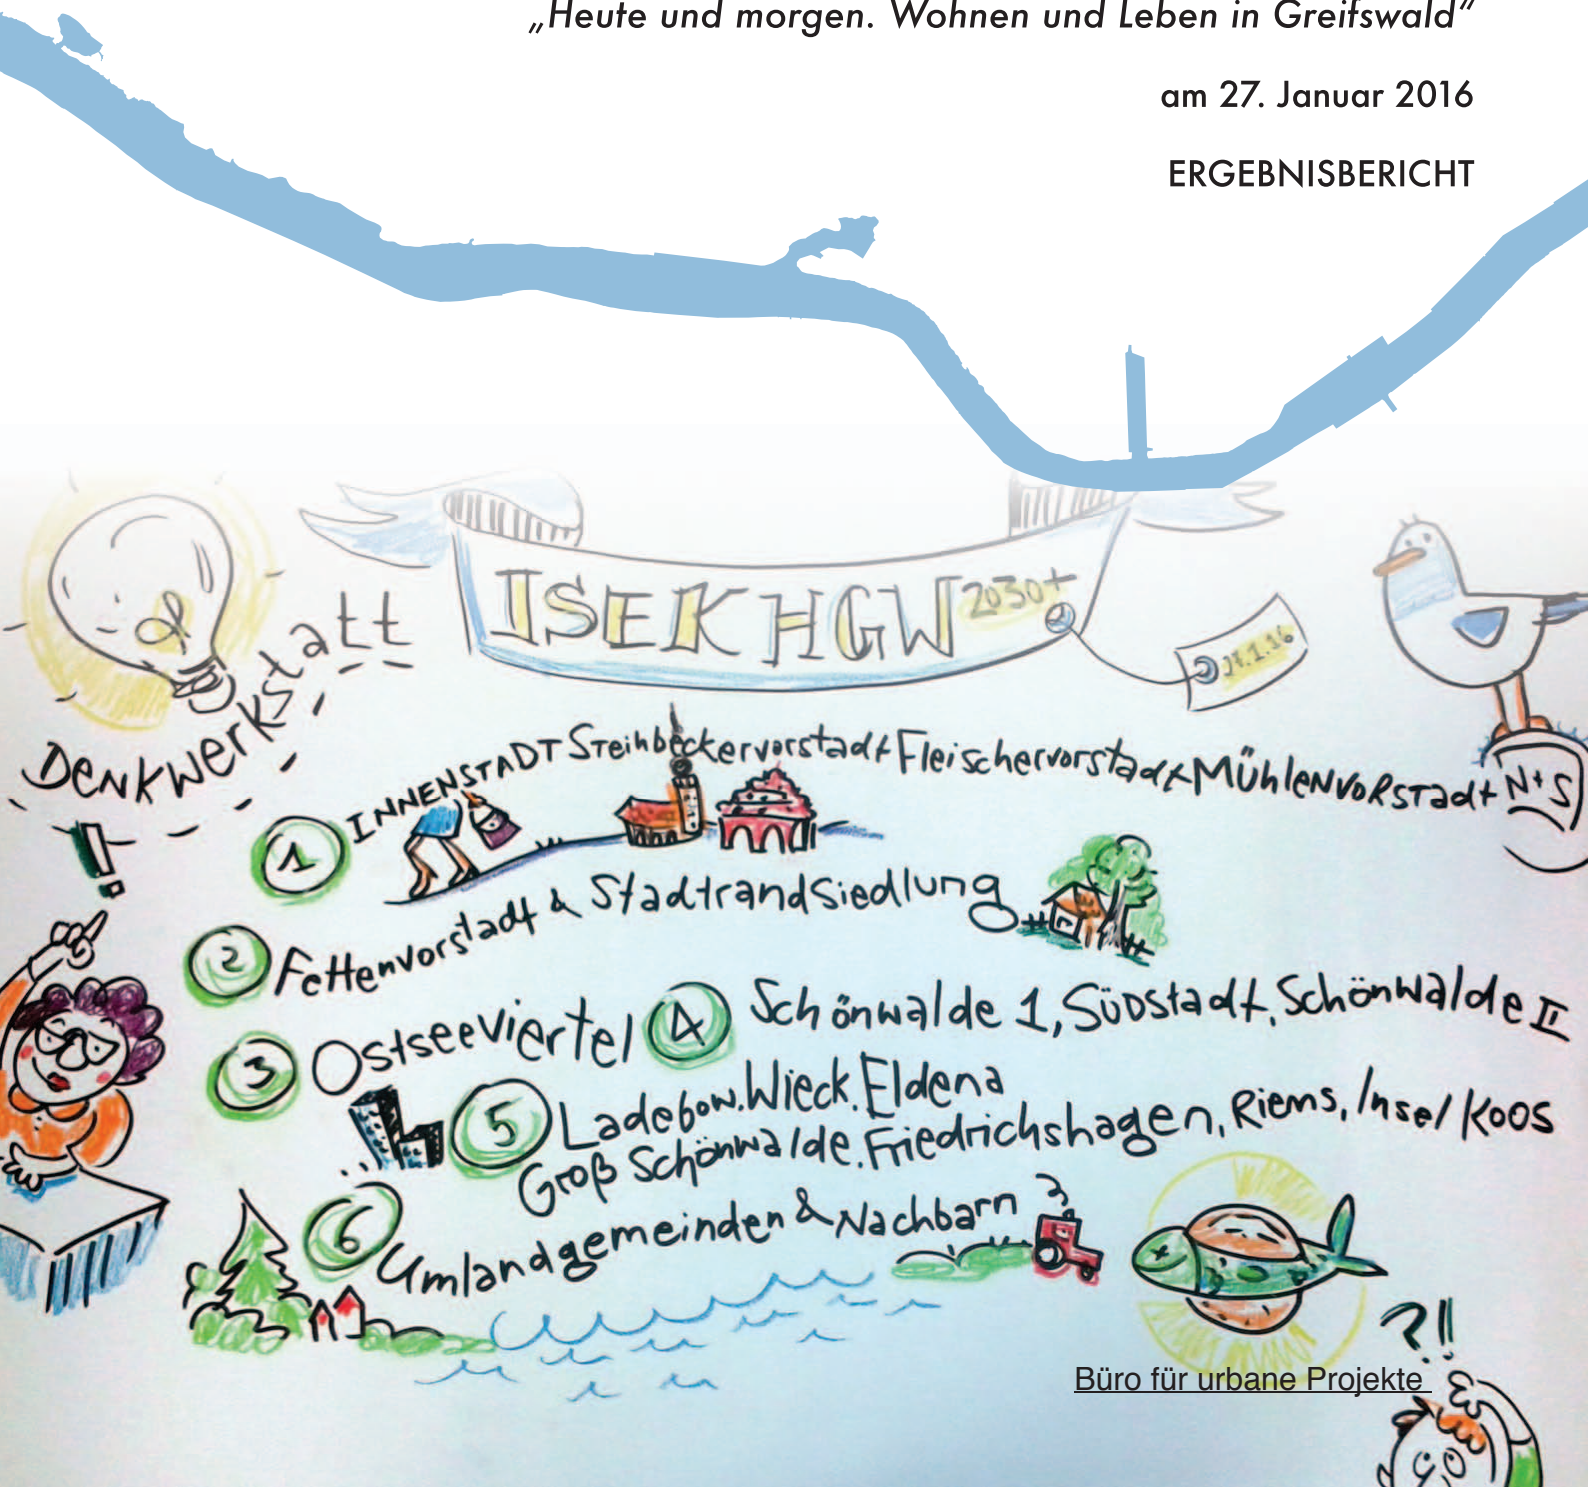 „Heute und morgen. Wohnen und Leben in Greifswald“
am 27. Januar 2016
ERGEBNISBERICHT
ISEK HGW 2030+
27.1.16
DENKWERKSTATT
!
1 INNENSTADT Steinbeckervorstadt Fleischervorstadt Mühlenvorstadt N+S
2 Fettenvorstadt & Stadtrandsiedlung
3 Ostseeviertel 4 Schönwalde 1, Südstadt, Schönwalde II
5 Ladebow. Wieck. Eldena
Groß Schönwalde. Friedrichshagen, Riems, Insel Koos
6 Umlandgemeinden & Nachbarn
?!!
Büro für urbane Projekte